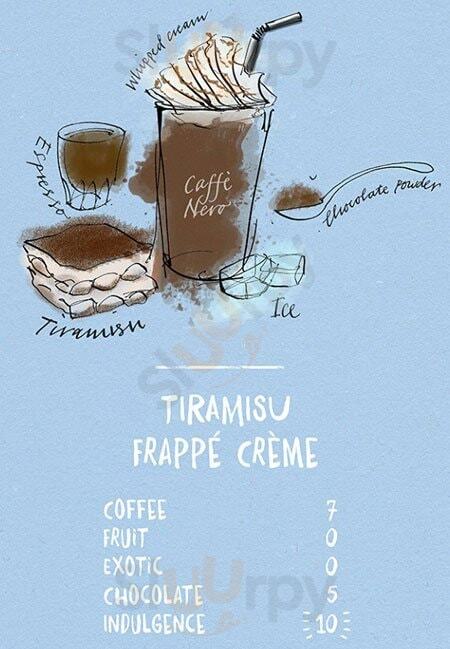 Whipped cream
Espresso
Caffè
Nero
Chocolate Powder
Tiramisu
Ice
TIRAMISU
FRAPPÉ CRÈME
COFFEE 7
FRUIT 0
EXOTIC 0
CHOCOLATE 5
INDULGENCE 10
sluurpy
sluurpy
sluurpy